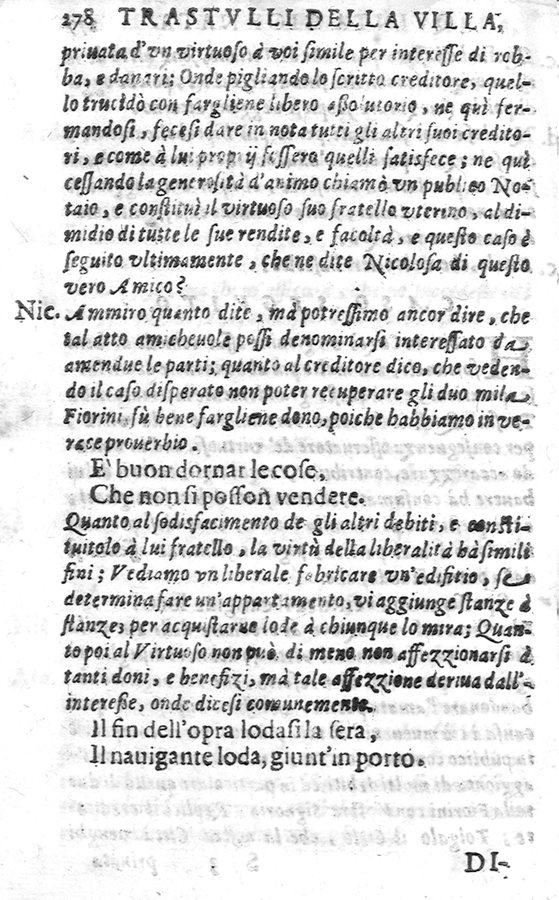 278 TRASTVLLI DELLA VILLA,
priuata d'vn virtuoso à voi simile per interesse di rob-
ba, e danari; Onde pigliando lo scritto creditore, quel-
lo trucidò con fargliene libero assolutorio, ne quì fer-
mandosi, fecesi dare in nota tutti gli altri suoi credito-
ri, e come à lui proprij fossero quelli satisfece; ne quì
cessando la generosità d'animo chiamò vn publico No-
taio, e constituì il virtuoso suo fratello vterino, al di-
midio di tutte le sue rendite, e facoltà, e questo caso è
seguito vltimamente, che ne dite Nicolosa di questo
vero Amico?
Nic. Ammiro quanto dite, mà potressimo ancor dire, che
tal atto amicheuole possi denominarsi interessato da
amendue le parti; quanto al creditore dico, che veden-
do il caso disperato non poter recuperare gli duo mila
Fiorini, fù bene fargliene dono, poiche habbiamo in ve-
race prouerbio.
E' buon dornar le cose,
Che non si posson vendere.
Quanto al sodisfacimento de gli altri debiti, e consti-
tuitolo à lui fratello, la virtù della liberalità hà simili
fini; Vediamo vn liberale fabricare vn'edifitio, se
determina fare un'appartamento, vi aggiunge stanze à
stanze, per acquistarne lode à chiunque lo mira; Quan-
to poi al Virtuoso non può di meno non affezzionarsi à
tanti doni, e benefizi, mà tale affezzione deriua dall'-
interesse, onde dicesi comunemente.
Il fin dell'opra lodasi la sera,
Il nauigante loda, giunt'in porto.
DI-